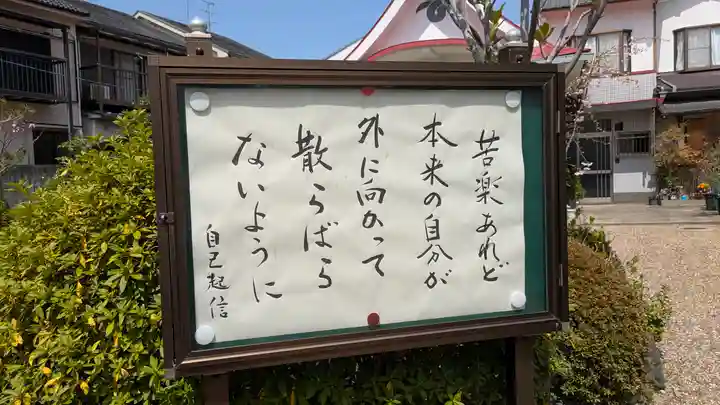 苦楽あれど
本来の自分が
外に向かって
散らばら
ないように
自己起信